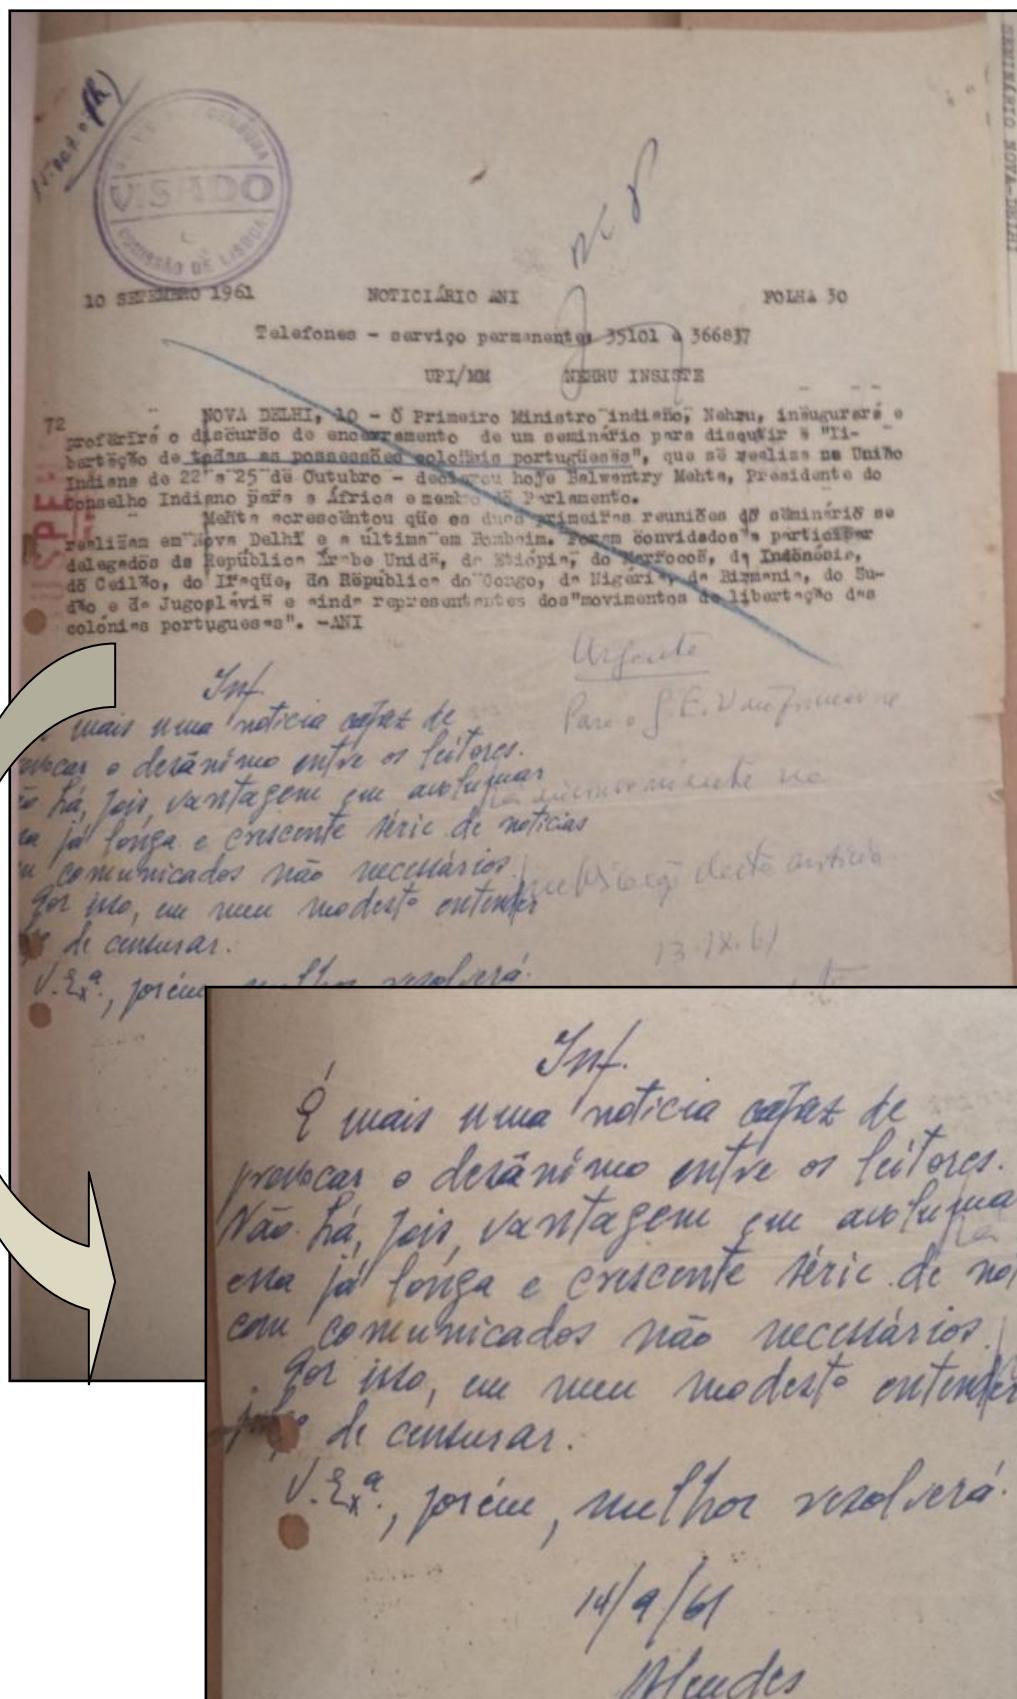 VISADO
COMISSÃO DE LISBOA
10 SETEMBRO 1961 NOTICIÁRIO ANI FOLHA 30
Telefones - serviço permanente: 35101 e 366837
UPI/MM NEHRU INSISTE
72 NOVA DELHI, 10 - O Primeiro Ministro indiano, Nehru, inaugurará e
proferirá o discurso de encerramento de um seminário para discutir a "li-
bertação de todas as possessões coloniais portuguesas", que se realiza na União
Indiana de 22 a 25 de Outubro - declarou hoje Balwentry Mehta, Presidente do
Conselho Indiano para a África e membro do Parlamento.
Mehta acrescentou que as duas primeiras reuniões do seminário se
realizam em Nova Delhi e a última em Bombaim. Foram convidados a participar
delegados da República Árabe Unida, da Etiópia, do Marrocos, da Indonésia,
do Ceilão, do Iraque, da República do Congo, da Nigéria, da Birmania, do Su-
dão e da Jugoslávia e ainda representantes dos "movimentos de libertação das
colónias portuguesas". -ANI
Urgente
Inf.
mais uma noticia capaz de
o desânimo entre os leitores.
há, pois, vantagem em avolumar
já longa e crescente série de noticias
comunicados não necessários.
Por isso, em meu modesto entender
de censurar.
V. Exª., porém, melhor resolverá.
inconveniente na
desta notícia
13.IX.61
Inf.
É mais uma noticia capaz de
provocar o desânimo entre os leitores.
Não há, pois, vantagem em avoluma
essa já longa e crescente série de no
com comunicados não necessários.
Por isso, em meu modesto entender
julgo de censurar.
V. Exª., porém, melhor resolverá.
14/9/61
Mendes
SEMINÁRIO NOVA-DELHI